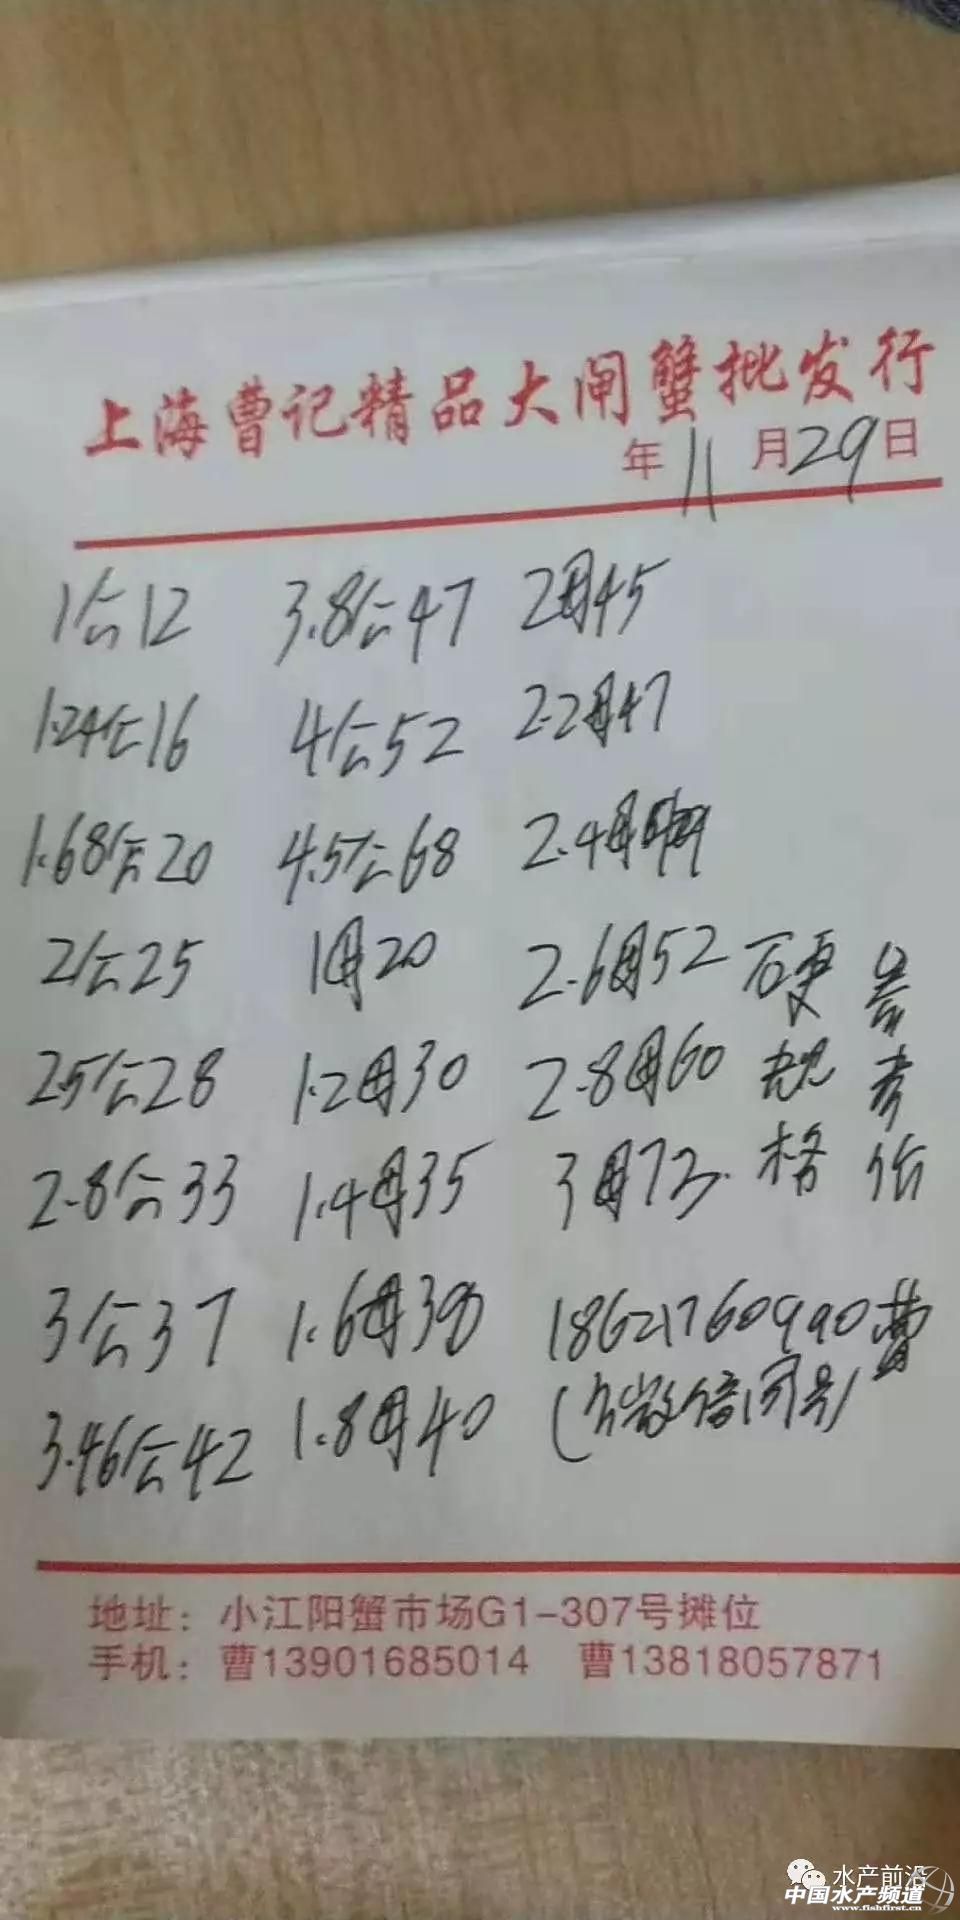 上海曹记精品大闸蟹批发行
年11月29日
1公12 3.8公47 2母45
1.24公16 4公52 2.2母47
1.68公20 4.5公68 2.4母
2公25 1母20 2.6母52
2.5公28 1.2母30 2.8母60
2.8公33 1.4母35 3母73
3公37 1.6母38 18621760990曹
3.46公42 1.8母40 (微信同号)
硬规格
参考价
地址：小江阳蟹市场G1-307号摊位
手机：曹13901685014 曹13818057871
水产前沿
中国水产频道
www.fishfirst.cn